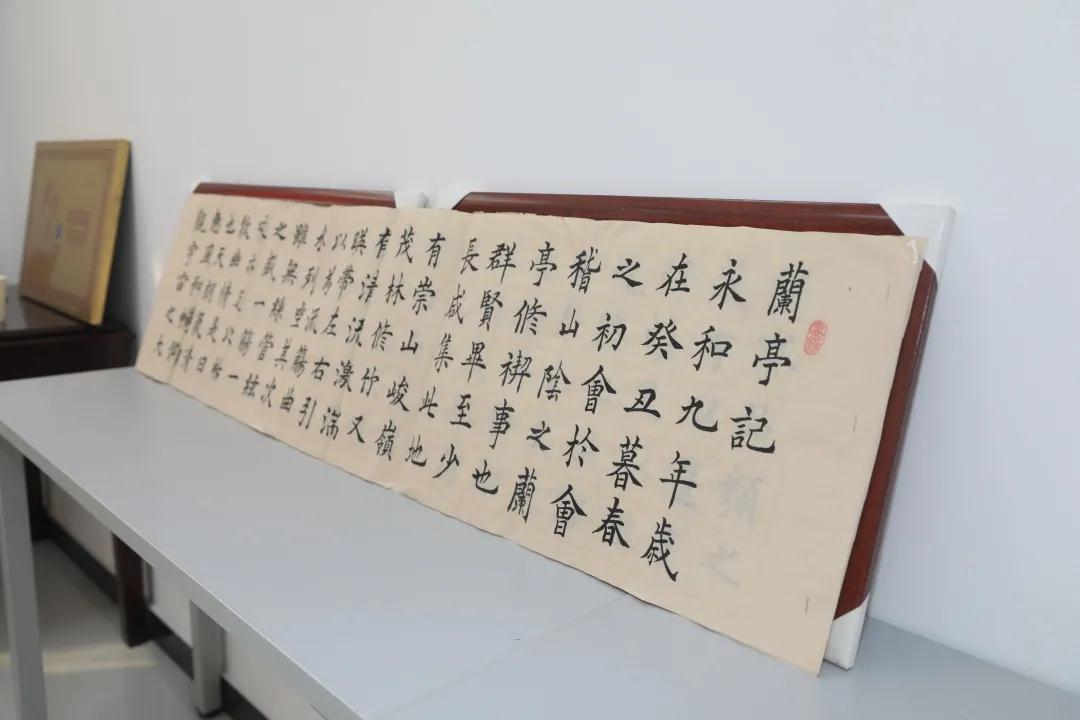 蘭亭記
永和九年歲
在癸丑暮春
之初會於會
稽山陰之蘭
亭修禊事也
群賢畢至少
長咸集此地
有崇山峻嶺
茂林修竹又
有清流激湍
暎帶左右引
以為流觴曲
水列坐其次
雖無絲管絃
之盛一觴一
詠亦足以暢
敘幽情是日
也天朗氣清
惠風和暢仰
觀宇宙之大